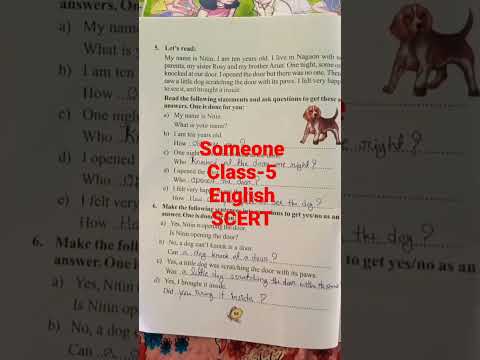 5. Let's read:
My name is Nitin. I am ten years old. I live in Nagaon with
parents, my sister Rosy and my brother One night, some
knocked at our door. I opened the door but there was no one. Then
saw a little dog scratching the door with its paws. I felt very happy
to see it, and brought it inside.
Read the following statements and ask questions to get these
answer. One is done for you:
a) My name is Nitin.
What is your name?
b) I am ten years old.
How ?
c) One night
Who knocked at the door one night?
d) I opened the
Who opened the door?
e) I felt very happy
How see the dog?
Someone
Class-5
English
SCERT
6. Make the following questions to get yes/no as an
answer. One is done
a) Yes, Nitin is opening the door.
Is Nitin opening the door?
b) No, a dog can't knock at a door.
Can a dog knock at a door?
c) Yes, a little dog was scratching the door with its paws.
Was a little dog scratching the door with its
d) Yes, I brought it inside.
Did you bring it inside?
a) My name
What is
b) I am ten
How
c) One night
Who
d) I opened
Who
e) I felt
How
6. Make the foll
answer. One
a) Yes, Nitin
Is Nitin o
b) No, a dog
Can a
night?
the dog?
to get yes/no as an